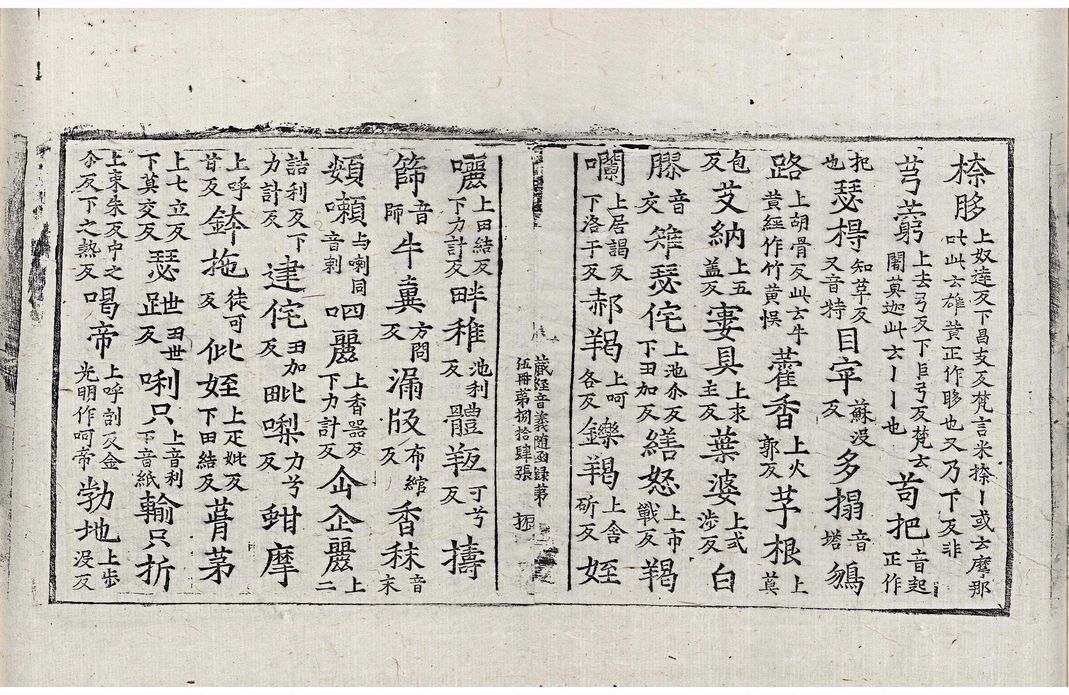 㮈䏧上奴達反下昌支反梵言米㮈丨或云麼那
叱此云雄黃正作眵也又乃下反非
芎藭上去弓反下巨弓反梵云
闍莫迦此云丨丨也苟把音起正作
杞也瑟㝵知革反又音特目䆪蘇沒反多搨音塔鶵
路上胡骨反此云牛黃經作竹黃悞藿香上火郭反芋根上
包反艾納上五蓋反寠具上求主反葉婆上式涉反白
膠音交雉瑟侘上池尒反下丑加反繕怒上市戰反羯
囒上居謁反下洛干反郝羯上呵各反鑠羯上舍斫反姪
藏經音義隨函錄第伍冊第捌拾肆張 振
囇上田結反下力計反畔稚池利反體羝丁兮反擣
篩音師牛糞方問反漏版布綰反香秣音末
䫫嚬與喇同音剌呬麗上香器反下力計反㐱企麗二上
詰利反下力計反達侘丑加反毗㗚力兮反蚶摩
上呼昔反鉢拖徒可反仳姪上疋妣反下田結反蒷茅
上七立反下莫交反瑟跇丑世反唎只上音利下音紙輸只折
上東朱反中之尒反下之熱反喝帝上呼割反金光明作呵帝勃地上步沒反